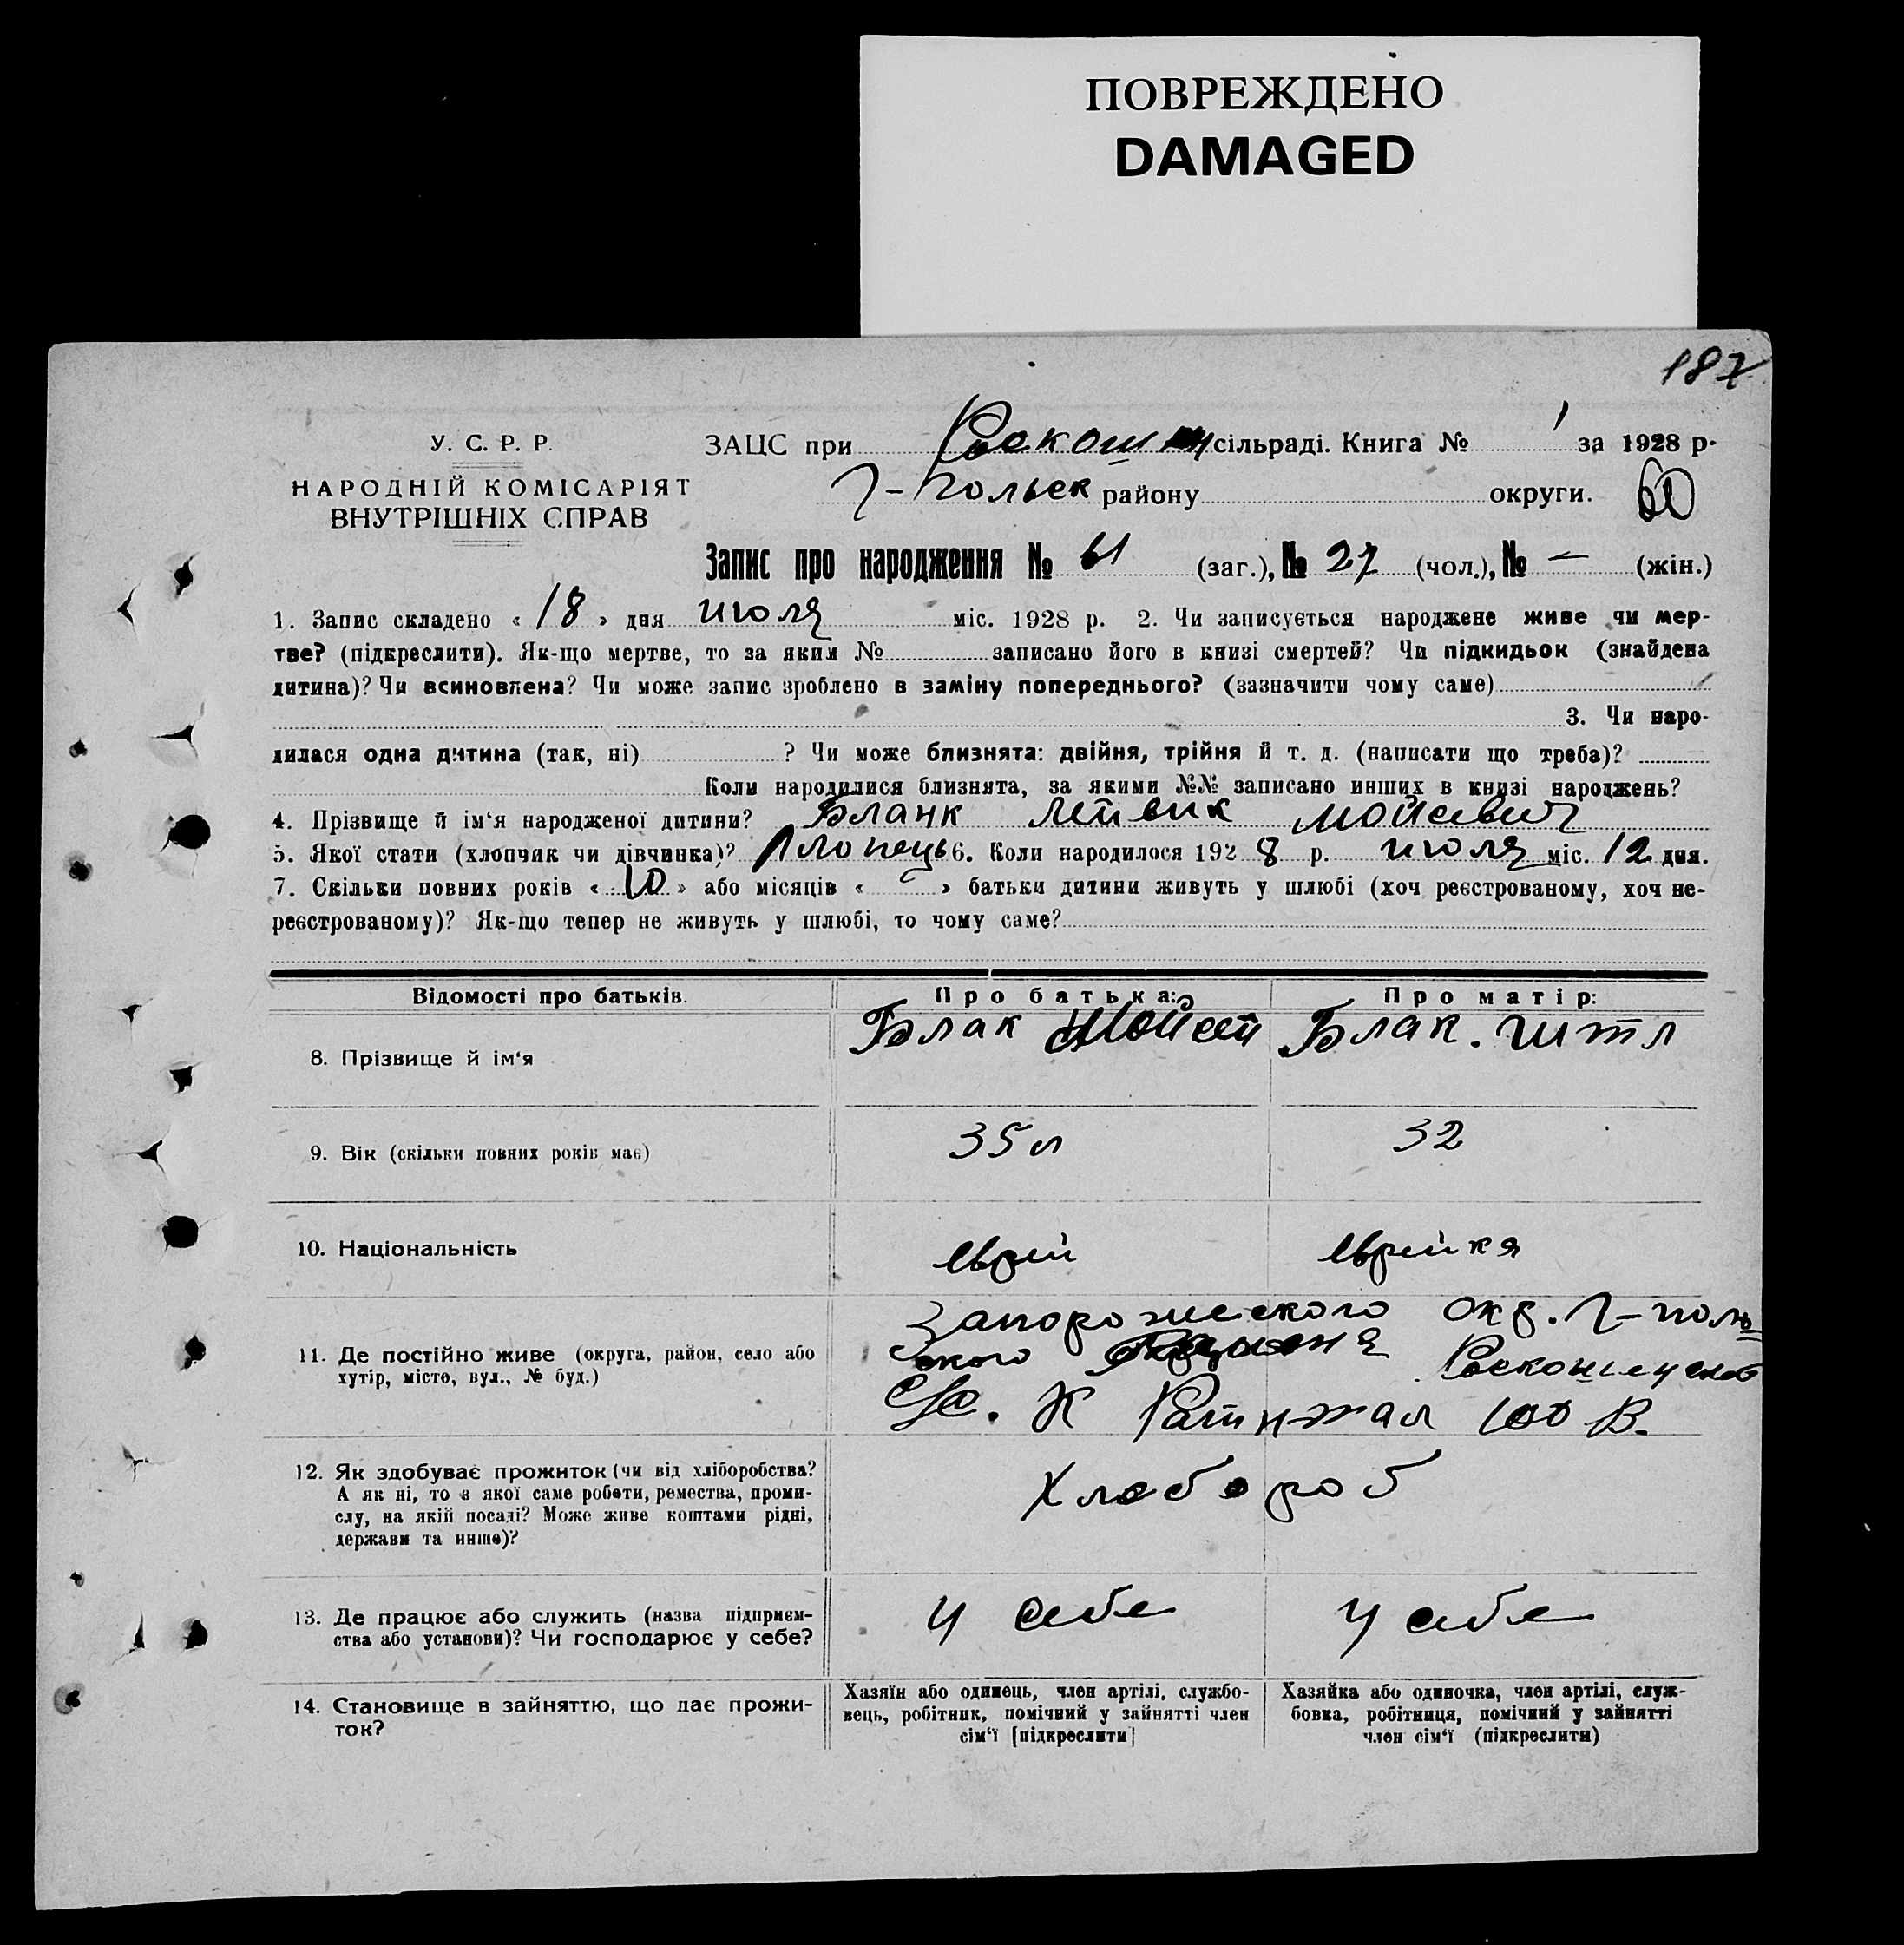 ПОВРЕЖДЕНО
DAMAGED
187
У. С. Р. Р.
НАРОДНІЙ КОМІСАРІЯТ
ВНУТРІШНІХ СПРАВ
ЗАЦС при сільраді. Книга № 1 за 1928 р.
Г-Польск району округи. 60
Запис про народження № 61 (заг.), № 27 (чол.), № — (жін.)
1. Запис складено « 18 » дня июля міс. 1928 р. 2. Чи записується народжене живе чи мер-
тве? (підкреслити). Як-що мертве, то за яким № записано його в книзі смертей? Чи підкидьок (знайдена
дитина)? Чи всиновлена? Чи може запис зроблено в заміну попереднього? (зазначити чому саме)
3. Чи наро-
дилася одна дитина (так, ні) ? Чи може близнята: двійня, трійня й т. д. (написати що треба)?
Коли народилися близнята, за якими №№ записано инших в книзі народжень?
4. Прізвище й ім'я народженої дитини? Бланк Лейвик Мойсевич
5. Якої стати (хлопчик чи дівчинка)? Хлопець 6. Коли народилося 1928 р. июля міс. 12 дня.
7. Скільки повних років « 10 » або місяців « » батьки дитини живуть у шлюбі (хоч реєстрованому, хоч не-
реєстрованому)? Як-що тепер не живуть у шлюбі, то чому саме?
Відомості про батьків. Про батька: Про матір:
8. Прізвище й ім'я Блак Мойсей Блак. Гитл
9. Вік (скільки повних років має) 35 л 32
10. Національність Еврей Еврейка
11. Де постійно живе (округа, район, село або
хутір, місто, вул., № буд.)
Запорожского Окр. Г-поль
ского Района
12. Як здобуває прожиток (чи від хліборобства?
А як ні, то з якої саме роботи, ремества, проми-
слу, на якій посаді? Може живе коштами рідні,
держави та инше)?
Хлебороб
13. Де працює або служить (назва підприєм-
ства або установи)? Чи господарює у себе?
У себе У себе
14. Становище в зайняттю, що дає прожи-
ток?
Хазяїн або одинець, член артілі, службо-
вець, робітник, помічний у зайнятті член
сім'ї [підкреслити]
Хазяйка або одиночка, член артілі, служ-
бовка, робітниця, помічний у зайнятті
член сім'ї (підкреслити)